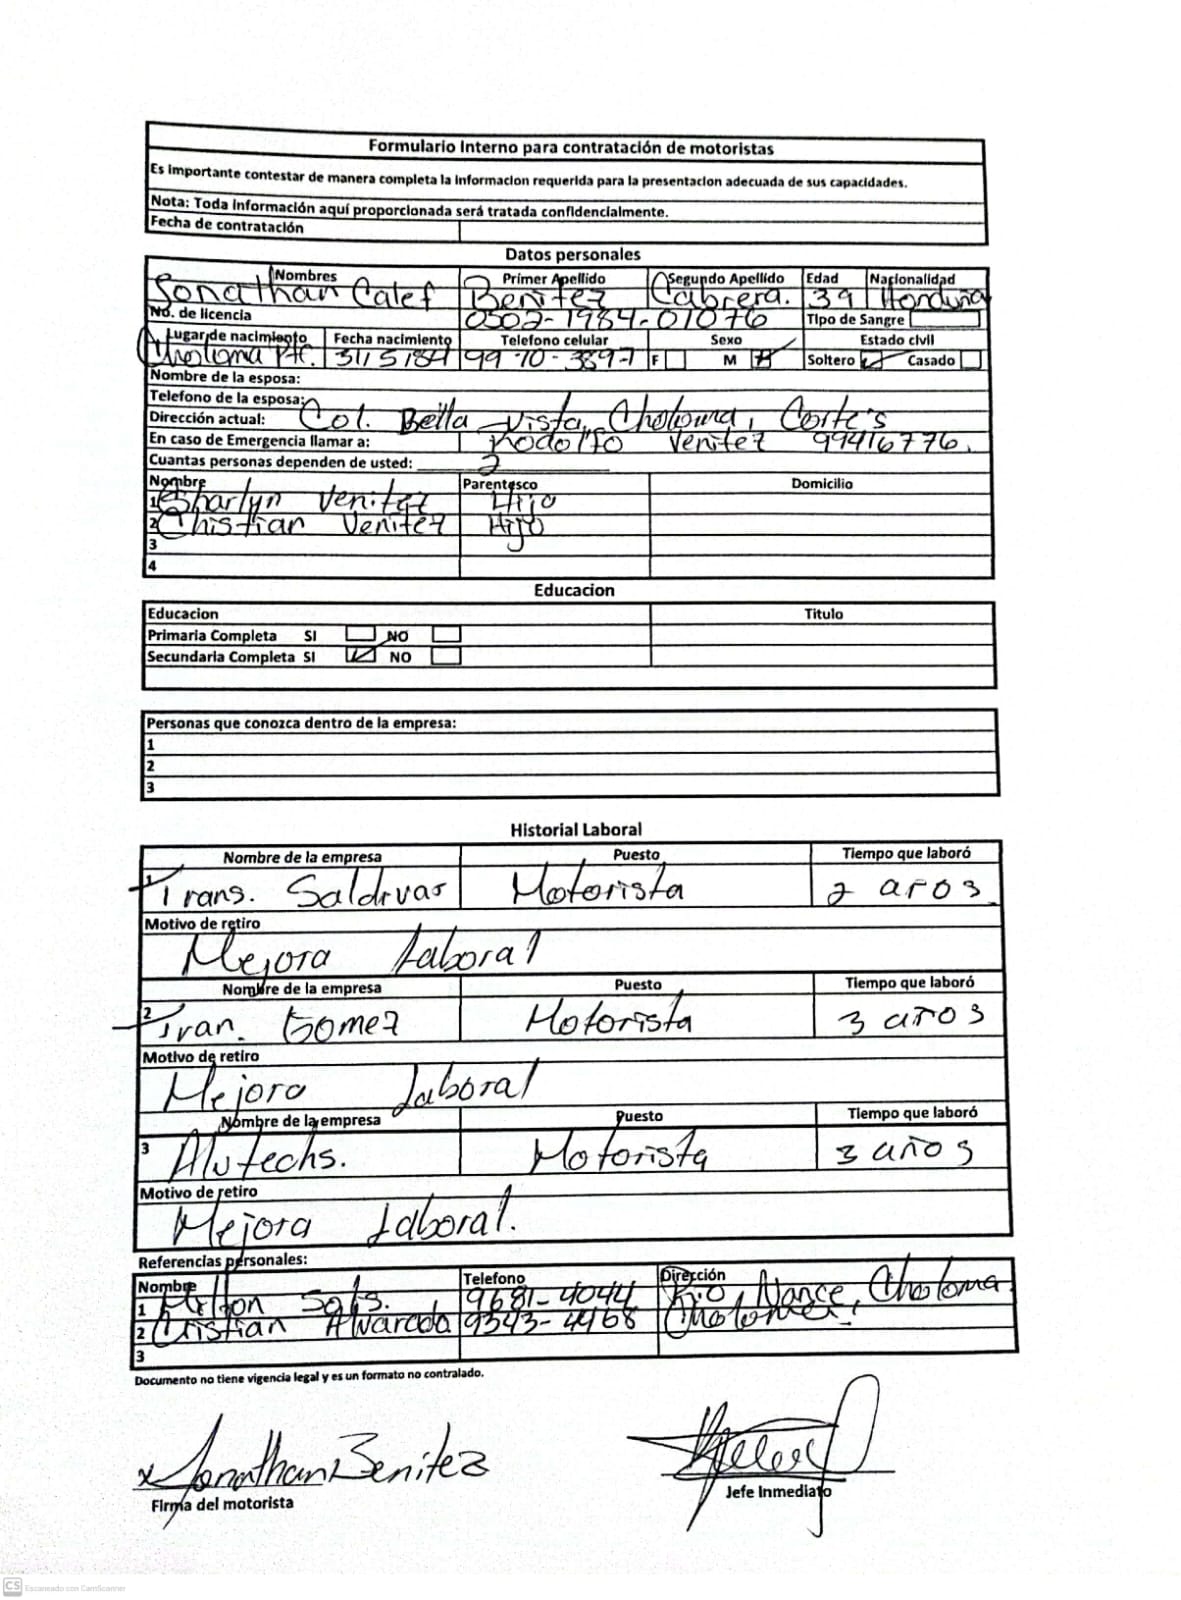 Formulario Interno para contratación de motoristas
Es Importante contestar de manera completa la Informacion requerida para la presentacion adecuada de sus capacidades.
Nota: Toda Información aquí proporcionada será tratada confidencialmente.
Fecha de contratación
Datos personales
Nombres Primer Apellido Segundo Apellido Edad Nacionalidad
Jonathan Calef Benitez Cabrera. 39 Hondureña
No. de licencia 0502-1984-01076 Tipo de Sangre
Lugar de nacimiento Fecha nacimiento Telefono celular Sexo Estado civil
Choloma 31/5/84 99-70-3897 F M Soltero Casado
Nombre de la esposa:
Telefono de la esposa:
Dirección actual: Col. Bella Vista, Choloma, Cortes
En caso de Emergencia llamar a: Rodolfo Venitez 99416776.
Cuantas personas dependen de usted: 2
Nombre Parentesco Domicilio
1 Sharlyn Venitez Hijo
2 Chistian Venitez Hijo
3
4
Educacion
Educacion Titulo
Primaria Completa SI NO
Secundaria Completa SI NO
Personas que conozca dentro de la empresa:
1
2
3
Historial Laboral
Nombre de la empresa Puesto Tiempo que laboró
1 Trans. Saldivar Motorista 2 años
Motivo de retiro
Mejora Laboral
Nombre de la empresa Puesto Tiempo que laboró
2 Tran. Gomez Motorista 3 años
Motivo de retiro
Mejora Laboral
Nombre de la empresa Puesto Tiempo que laboró
3 Alutechs. Motorista 3 años
Motivo de retiro
Mejora Laboral.
Referencias personales:
Nombre Telefono Dirección
1 Milton 9681-4044 Rio Nance, Choloma.
2 Cristian Alvarado 9343-4468 Choloma.
3
Documento no tiene vigencia legal y es un formato no contralado.
x Jonathan Benitez
Firma del motorista
Jefe Inmediato
CS Escaneado con CamScanner